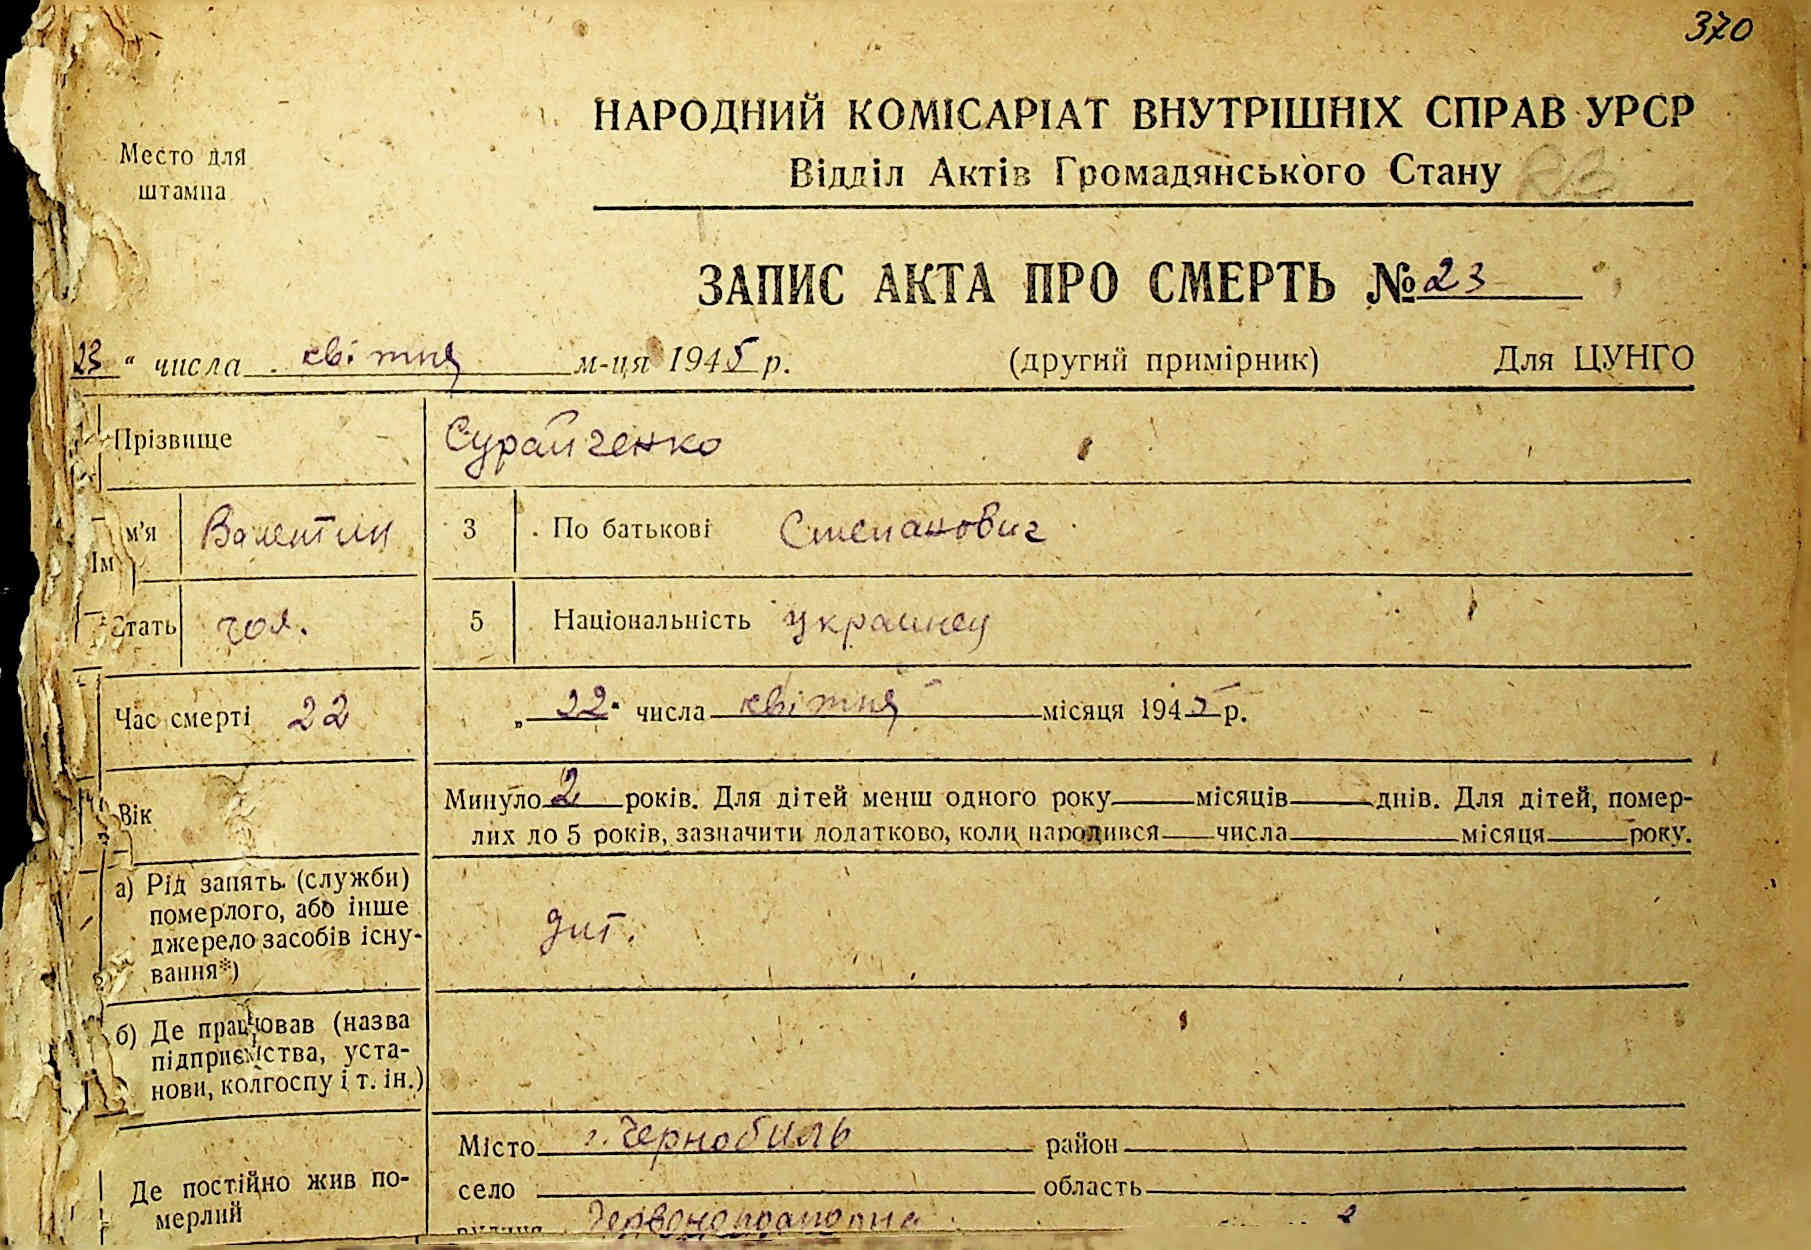 370
НАРОДНИЙ КОМІСАРІАТ ВНУТРІШНІХ СПРАВ УРСР
Место для
штампа
Відділ Актів Громадянського Стану
ЗАПИС АКТА ПРО СМЕРТЬ № 23
23 " числа квітня м-ця 1945 р. (другий примірник) Для ЦУНГО
Прізвище Сурайченко
Ім'я Валентин 3 По батькові Степанович
Стать чол. 5 Національність украинец
Час смерті 22 „ 22 " числа квітня місяця 1945 р.
Вік Минуло 2 років. Для дітей менш одного року місяців днів. Для дітей, помер-
лих до 5 років, зазначити додатково, коли народився числа місяця року.
а) Рід занять (служби)
померлого, або інше
джерело засобів існу-
вання*)
дит.
б) Де працював (назва
підприємства, уста-
нови, колгоспу і т. ін.)
Де постійно жив по-
мерлий
Місто г. Чернобиль район
село область
вулиця Червонопрапорна 2